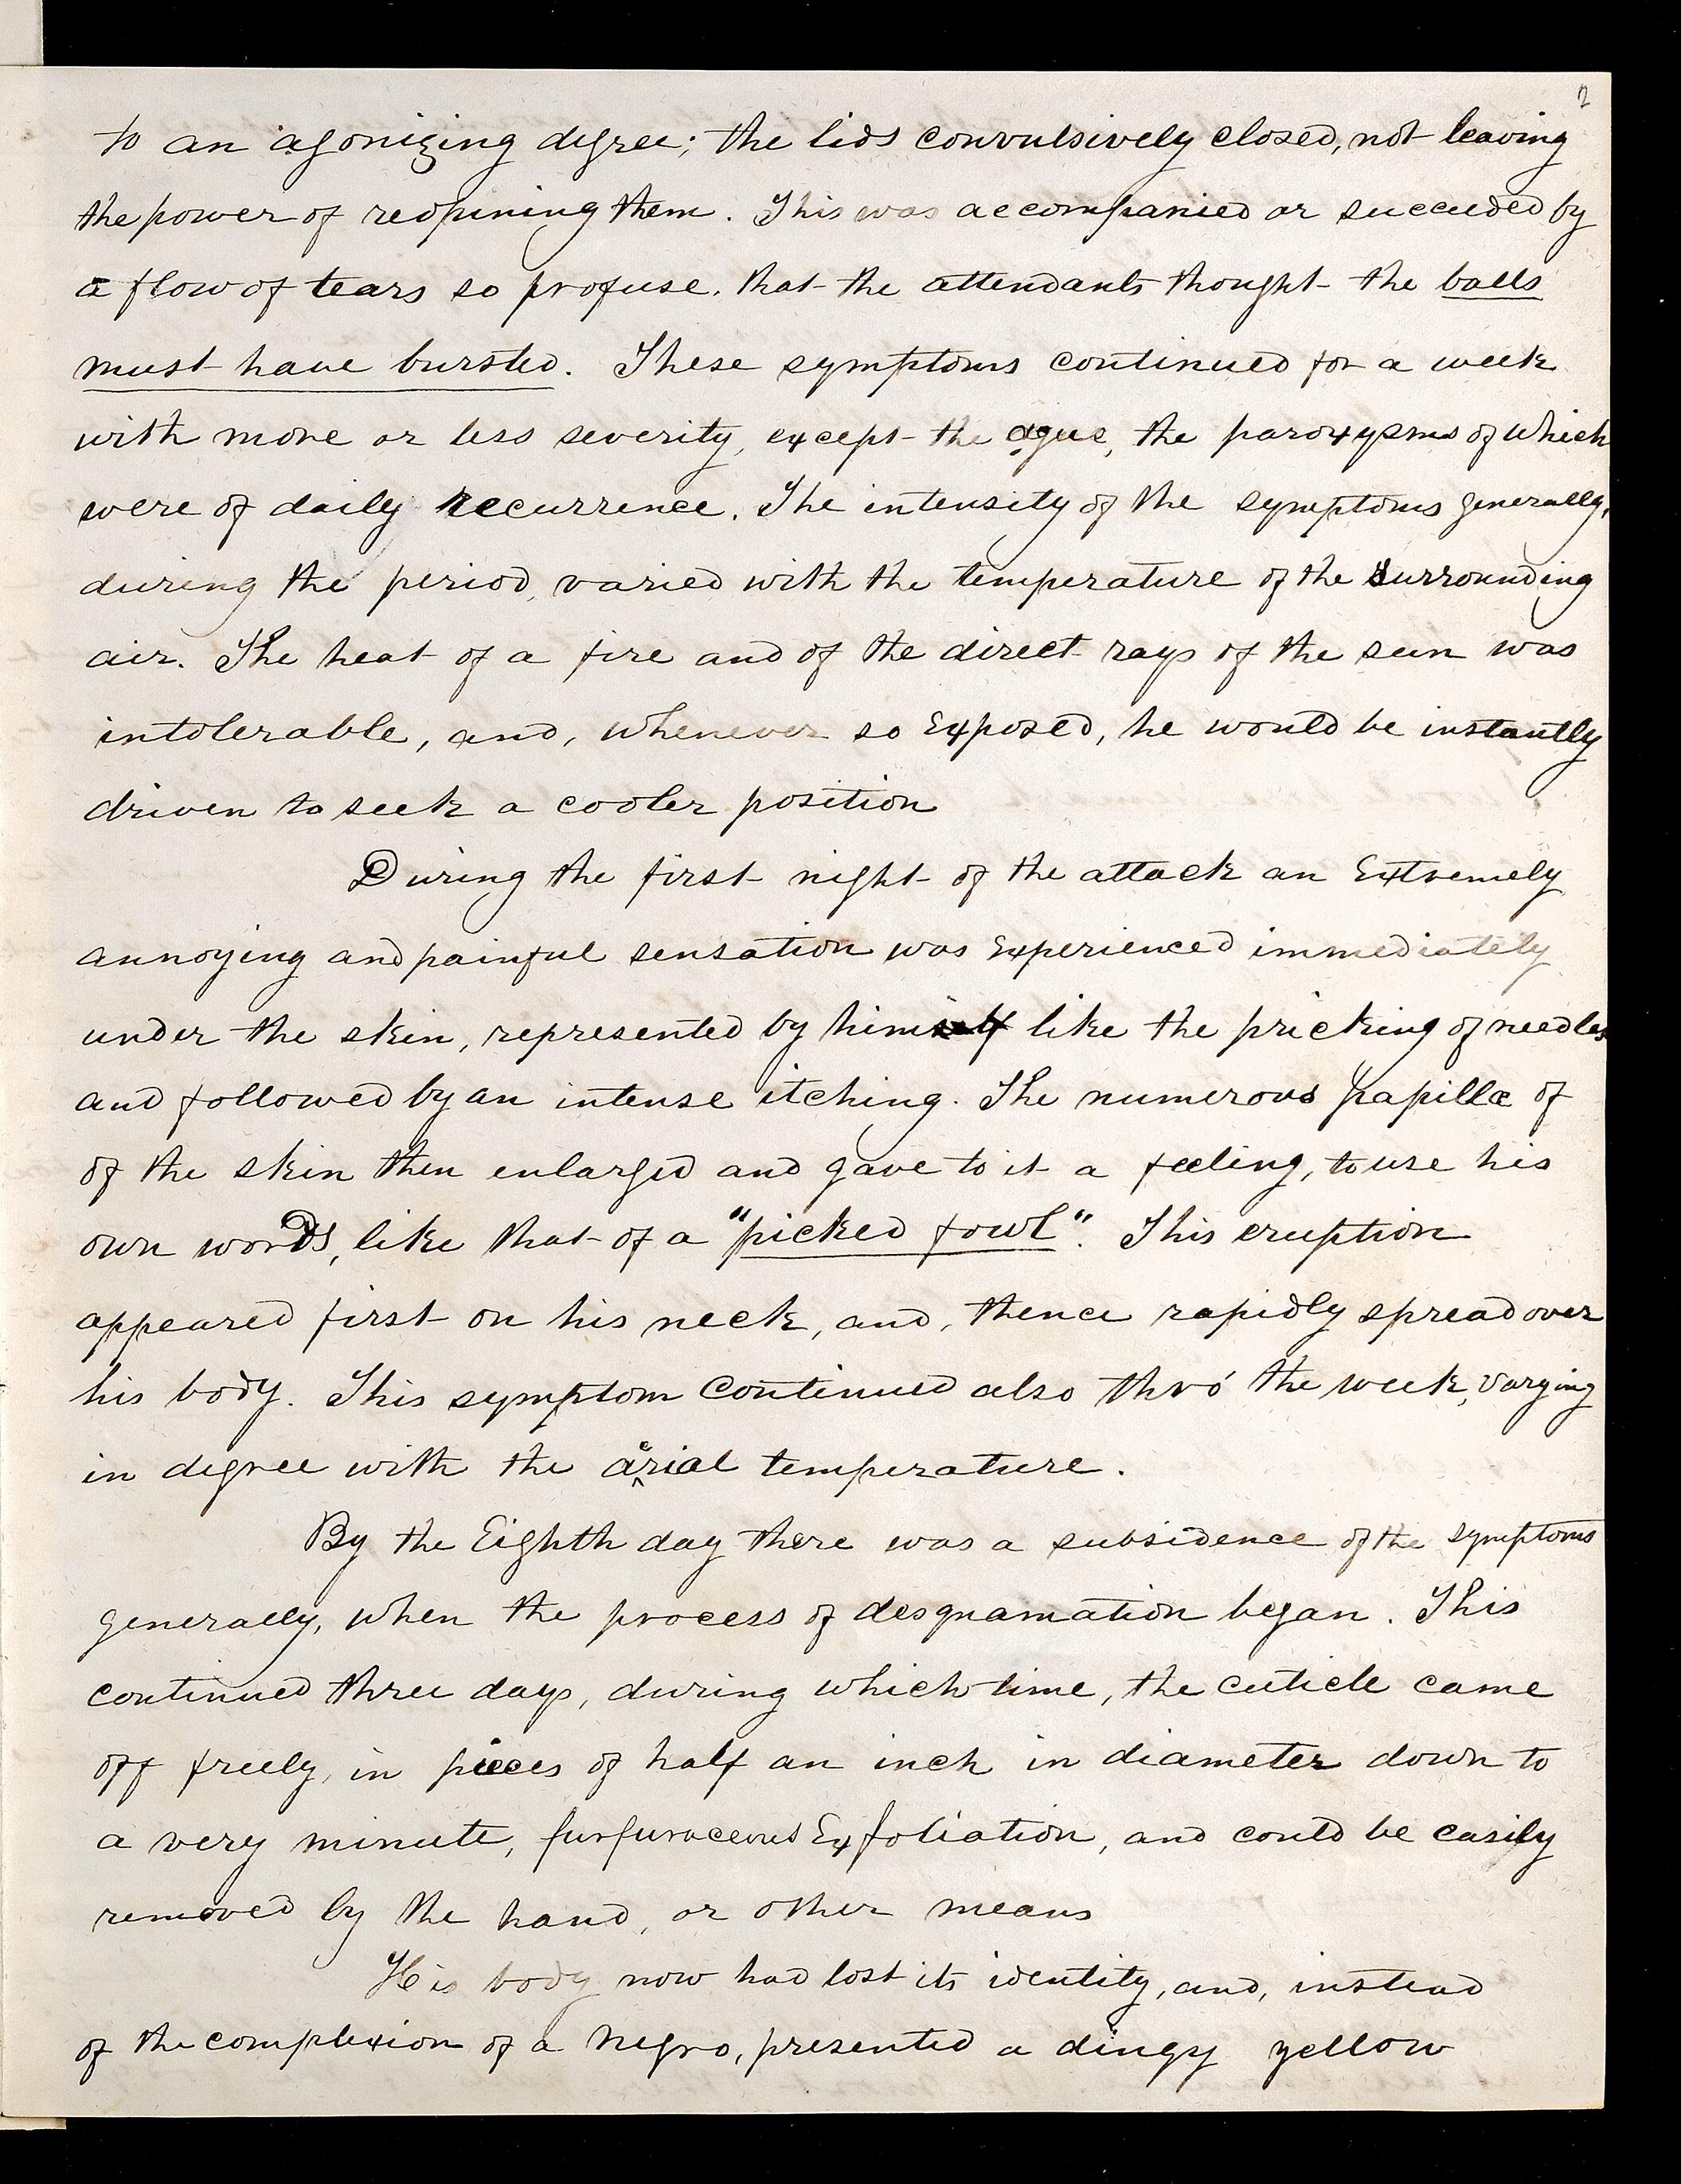 2
to an agonizing degree; the lids convulsively closed, not leaving
the power of reopining them. This was accompanied or succeeded by
a flow of tears so profuse, that the attendants thought the balls
must have bursted. These symptoms continued for a week
with more or less severity, except the ague, the paroxysms of which
were of daily recurrence. The intensity of the symptoms generally,
during the period, varied with the temperature of the surrounding
air. The heat of a fire and of the direct rays of the sun was
intolerable, and, whenever so exposed, he would be instantly
driven to seek a cooler position
During the first night of the attack an extremely
annoying and painful sensation was experienced immediately
under the skin, represented by himself like the pricking of needles
and followed by an intense itching. The numerous papillæ of
of the skin then enlarged and gave to it a feeling, to use his
own words, like that of a "picked fowl". This eruption
appeared first on his neck, and, thence rapidly spread over
his body. This symptom continued also thro' the week, varying
in degree with the aerial temperature.
By the Eighth day there was a subsidence of the symptoms
generally, when the process of desquamation began. This
continued three days, during which time, the cuticle came
off freely, in pieces of half an inch in diameter down to
a very minute, furfuraceous exfoliation, and could be easily
removed by the hand, or other means
His body now had lost its identity, and, instead
of the complexion of a negro, presented a dingy yellow